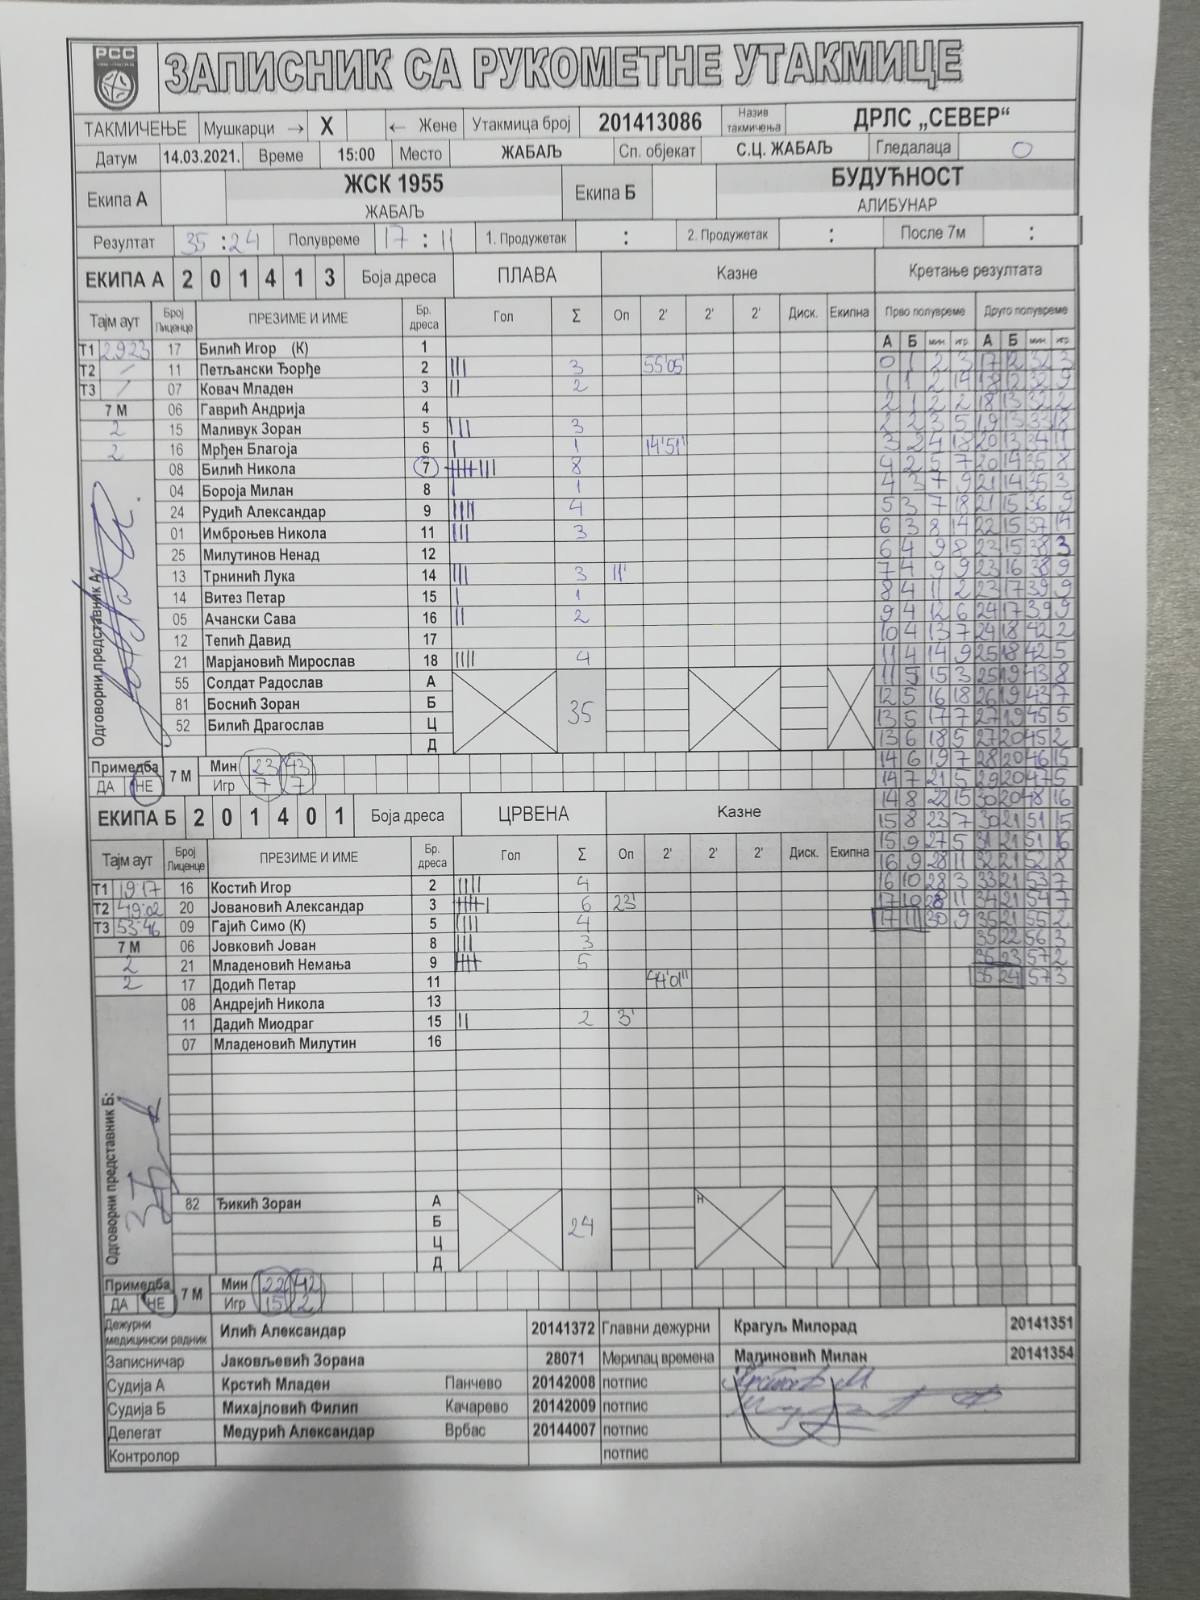 РСС
ЗАПИСНИК СА РУКОМЕТНЕ УТАКМИЦЕ
ТАКМИЧЕЊЕ Мушкарци → X ← Жене Утакмица број 201413086 Назив такмичења ДРЛС „СЕВЕР“
Датум 14.03.2021. Време 15:00 Место ЖАБАЉ Сп. објекат С.Ц. ЖАБАЉ Гледалаца 0
Екипа А ЖСК 1955 Екипа Б БУДУЋНОСТ
ЖАБАЉ АЛИБУНАР
Резултат 35 : 24 Полувреме 17 : 11 1. Продужетак : 2. Продужетак : После 7м :
ЕКИПА А 2 0 1 4 1 3 Боја дреса ПЛАВА Казне Кретање резултата
Тајм аут Број Лиценце ПРЕЗИМЕ И ИМЕ Бр. дреса Гол Σ Оп 2' 2' 2' Диск. Екипна Прво полувреме Друго полувреме
А Б мин. игр. А Б мин. игр.
Т1 2923 17 Билић Игор (К) 1
Т2 / 11 Петљански Ђорђе 2 ||| 3 55'05"
Т3 / 07 Ковач Младен 3 || 2
7 М 06 Гаврић Андрија 4
2 15 Маливук Зоран 5 ||| 3
2 16 Мрђен Благоја 6 | 1 14'51"
08 Билић Никола 7 8
04 Бороја Милан 8 | 1
24 Рудић Александар 9 |||| 4
01 Имброњев Никола 11 ||| 3
25 Милутинов Ненад 12
13 Трнинић Лука 14 ||| 3 11'
14 Витез Петар 15 | 1
05 Ачански Сава 16 || 2
12 Тепић Давид 17
21 Марјановић Мирослав 18 |||| 4
55 Солдат Радослав А
81 Боснић Зоран Б 35
52 Билић Драгослав Ц
Д
Одговорни представник А:
0 1 2 3 17 12 32 3
1 1 2 14 18 12 32 9
2 1 2 2 18 13 32 2
2 2 3 5 19 13 33 18
3 2 4 18 20 13 34 11
4 2 5 7 20 14 35 8
4 3 7 9 21 14 35 3
5 3 7 18 21 15 36 9
6 3 8 14 22 15 37 14
6 4 9 8 23 15 38 3
7 4 9 9 23 16 38 9
8 4 11 2 23 17 39 9
9 4 12 6 24 17 39 9
10 4 13 7 24 18 42 2
11 4 14 9 25 18 42 5
11 5 15 3 25 19 43 8
12 5 16 18 26 19 43 7
13 5 17 7 27 19 45 5
13 6 18 5 27 20 45 2
14 6 19 7 28 20 46 15
14 7 21 5 29 20 47 5
14 8 22 15 30 20 48 16
15 8 23 7 30 21 51 15
15 9 27 5 31 21 51 16
16 9 28 11 32 21 52 8
16 10 28 3 33 21 53 7
17 10 28 11 34 21 54 7
17 11 30 9 35 21 55 2
35 22 56 3
35 23 57 2
35 24 57 3
Примедба 7 М Мин 23 43
ДА НЕ Игр 7 7
ЕКИПА Б 2 0 1 4 0 1 Боја дреса ЦРВЕНА Казне
Тајм аут Број Лиценце ПРЕЗИМЕ И ИМЕ Бр. дреса Гол Σ Оп 2' 2' 2' Диск. Екипна
Т1 19:17 16 Костић Игор 2 |||| 4
Т2 49:02 20 Јовановић Александар 3 6 23'
Т3 53:46 09 Гајић Симо (К) 5 |||| 4
7 М 06 Јовковић Јован 8 ||| 3
2 21 Младеновић Немања 9 5
2 17 Додић Петар 11 44'01"
08 Андрејић Никола 13
11 Дадић Миодраг 15 || 2 3'
07 Младеновић Милутин 16
Одговорни представник Б:
82 Ђикић Зоран А Н
Б 24
Ц
Д
Примедба 7 М Мин 22 42
ДА НЕ Игр 15 2
Дежурни медицински радник Илић Александар 20141372 Главни дежурни Крагуљ Милорад 20141351
Записничар Јаковљевић Зорана 28071 Мерилац времена Малиновић Милан 20141354
Судија А Крстић Младен Панчево 20142008 потпис
Судија Б Михајловић Филип Качарево 20142009 потпис
Делегат Медурић Александар Врбас 20144007 потпис
Контролор потпис